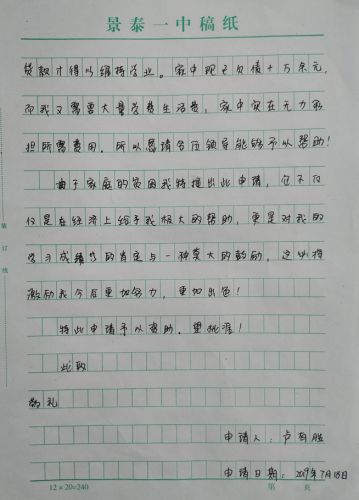 景泰一中稿纸
贷款才得以维持学业。家中现已负债十万余元,
而我又需要大量学费生活费,家中实在无力承
担所需费用。所以恳请各位领导能够予以帮助!
由于家庭的贫困我特提出此申请,它不仅
仅是在经济上给予我极大的帮助,更是对我的
学习成绩的肯定与一种莫大的鼓励,这必将
激励我今后更加努力,更加出色!
特此申请予以资助,望批准!
此致
敬礼
申请人:卢有胜
申请日期:2019年7月18日
12×20=240
第 页
装订线